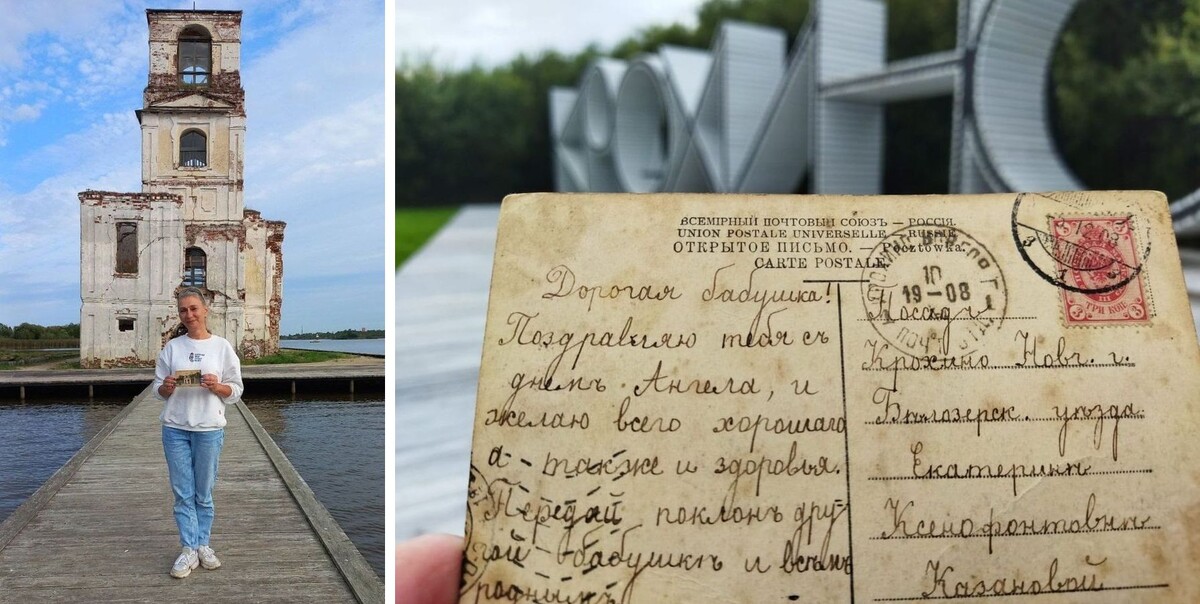 КРОХИНО
ВСЕМІРНЫЙ ПОЧТОВЫЙ СОЮЗЪ — РОССІЯ.
UNION POSTALE UNIVERSELLE — RUSSIE
ОТКРЫТОЕ ПИСЬМО. — Pocztówka.
CARTE POSTALE
Дорогая бабушка!
Поздравляю тебя съ
днемъ Ангела, и
желаю всего хорошаго
а также и здоровья.
Передай поклонъ дру-
гой бабушкѣ и всѣмъ
роднымъ
10
19–08
ТРИ КОП.
Посадъ
Крохино Новг. г.
Бѣлозерск. уѣзда
Екатеринѣ
Ксенофонтовнѣ
Казановой